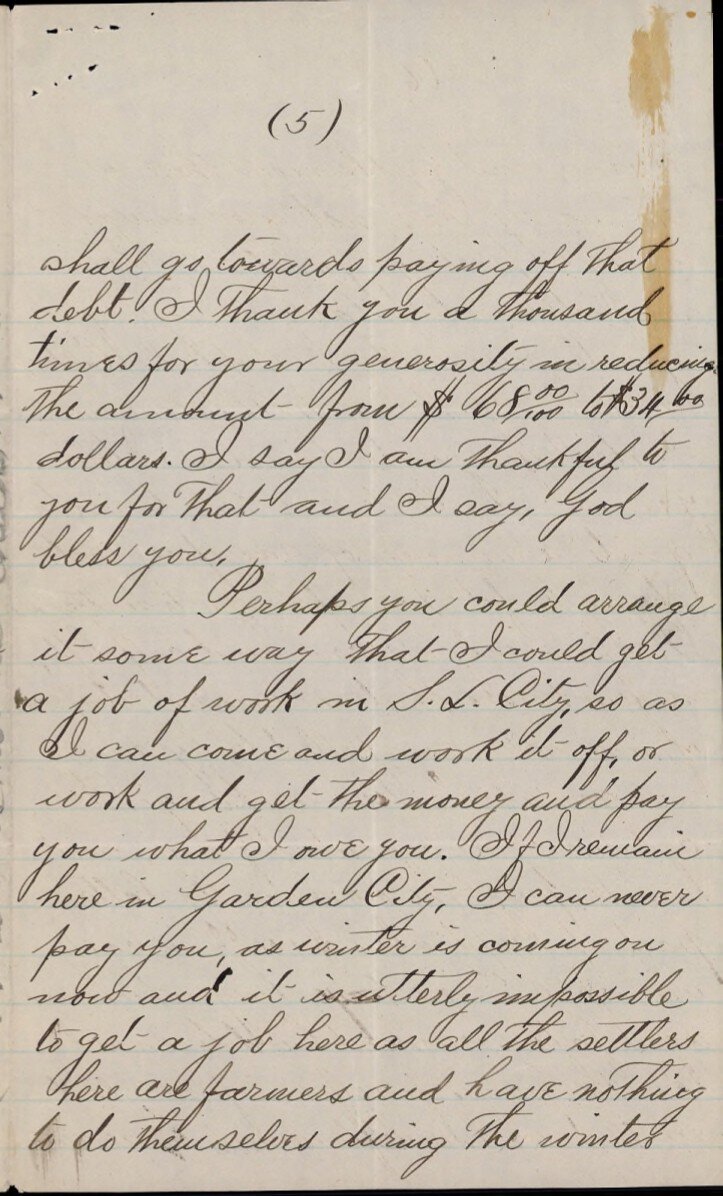 (5)
shall go towards paying off that
debt. I thank you a thousand
times for your generosity in reducing
the amount from $ 68 00/100 to $34 00
dollars. I say I am thankful to
you for that and I say, God
bless you.
Perhaps you could arrange
it some way that I could get
a job of work in S. L. City, so as
I can come and work it off, or
work and get the money and pay
you what I owe you. If I remain
here in Garden City, I can never
pay you, as winter is coming on
now and it is utterly impossible
to get a job here as all the settlers
here are farmers and have nothing
to do themselves during the winter